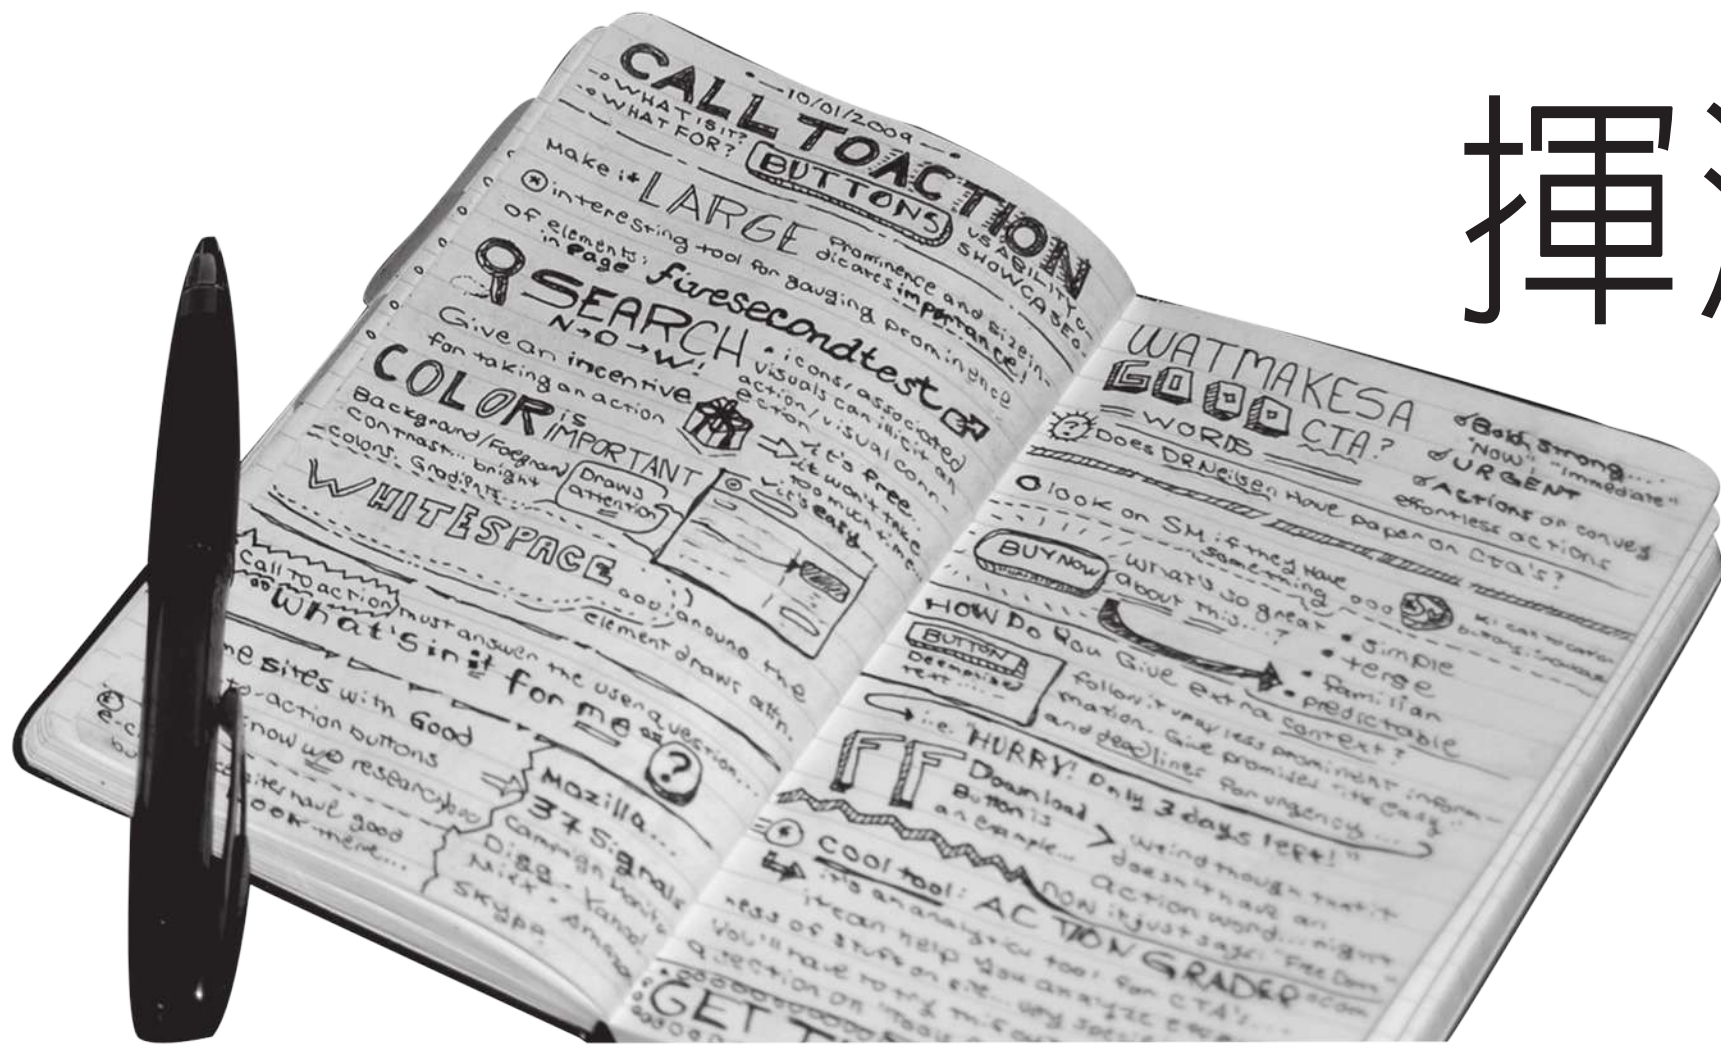 10/01/2009
CALL TO ACTION
WHAT IS IT?
WHAT FOR?
BUTTONS
USABILITY
SHOWCASE
Make it LARGE
prominence and size in-
dicates importance!
interesting tool for gauging prominence
of elements:
in page fivesecondtest
SEARCH
N→O→W!
icons/associated
visuals can illicit an
action/visual conn-
ection
Give an incentive
for taking an action
it's free..
it won't take
too much time
it's easy
COLOR is
IMPORTANT
Background/Foeground
contrast... bright
colors. Gradients...
Draws
attention
WHITESPACE
around the
element draws attn.
Call TO action must answer the user question...
What's in it for me?
sites with Good
to-action buttons
now research
have good
Mozilla...
37 Signals
campaign monitor
Digg - 
Skype
WAT MAKES A
GOOD CTA?
WORDS
Bold, strong...
"NOW", "immediate"
URGENT
Actions or convey
effortless actions
Does DR Neilsen Have paper on CTA's?
look on SM if they have
something
BUY NOW
What's so great
about this...?
simple
terse
familiar
predictable
HOW Do You Give extra context?
BUTTON
text...
follow it up w/ less prominent infor-
mation. Give promises "it's easy"
and deadlines for urgency...
i.e. "HURRY! Only 3 days left!"
FF Download
Button is
an example...
weird though that it
doesn't have an
action word... 
now it just says: "Free Down"
cool tool: ACTION GRADER
it's an analytics tool for CTA's...
it can help you analyze
ness of stuff on site... very
You'll have to try this out
GET
揮